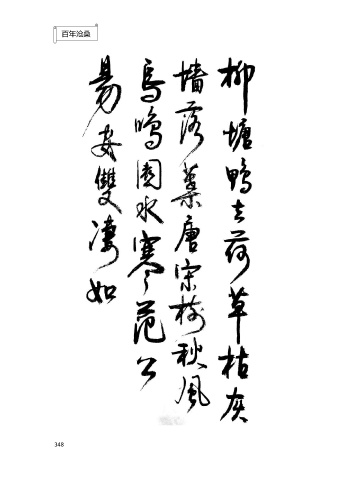 百年沧桑
柳塘鸭去荷草枯灰
墙落叶唐宋树秋风
鸟鸣园水寒范公
易安双凄如
348